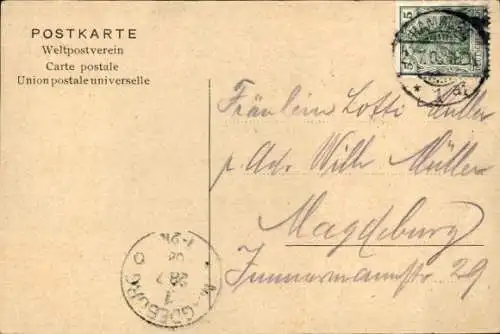 POSTKARTE
Weltpostverein
Carte postale
Union postale universelle
5
HANN
Fräulein Lotti Müller
p. Adr. Wilh. Müller
Magdeburg
Immermannstr. 29.
MAGDEBURG
1